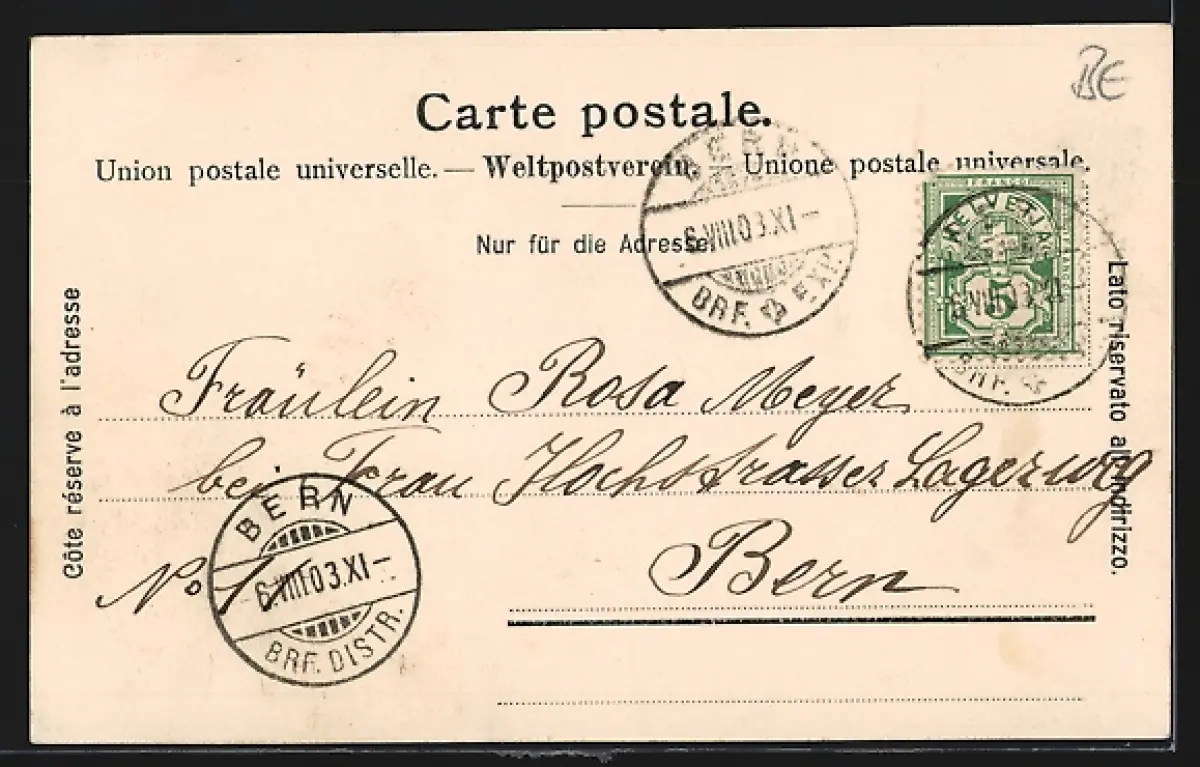 BE
Carte postale.
Union postale universelle. — Weltpostverein. — Unione postale universale.
Nur für die Adresse.
BERN
6.VIII.03.XI–
BRF. EXP.
FRANCO
HELVETIA
5
6.VIII.03.XI
BRF.
Côte réserve à l'adresse
Lato riservato all'indirizzo.
Fräulein Rosa Meyer
bei Frau Hochstrasser Lagerweg
No
Bern
BERN
6.VIII.03.XI–
BRF. DISTR.